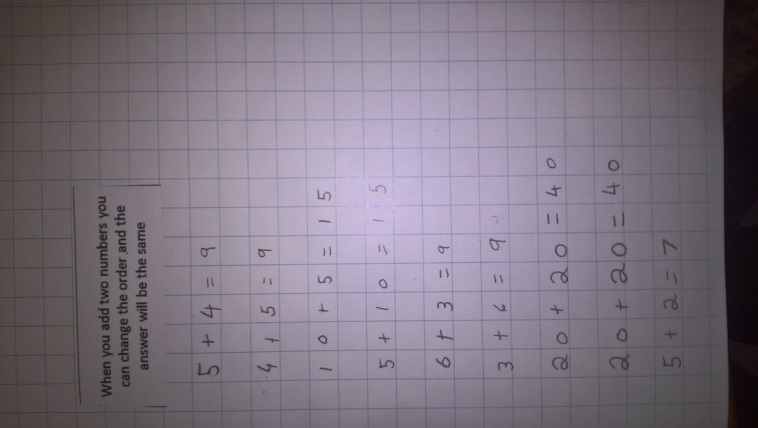 When you add two numbers you
can change the order and the
answer will be the same
5 + 4 = 9
4 + 5 = 9
10 + 5 = 15
5 + 10 = 15
6 + 3 = 9
3 + 6 = 9
20 + 20 = 40
20 + 20 = 40
5 + 2 = 7